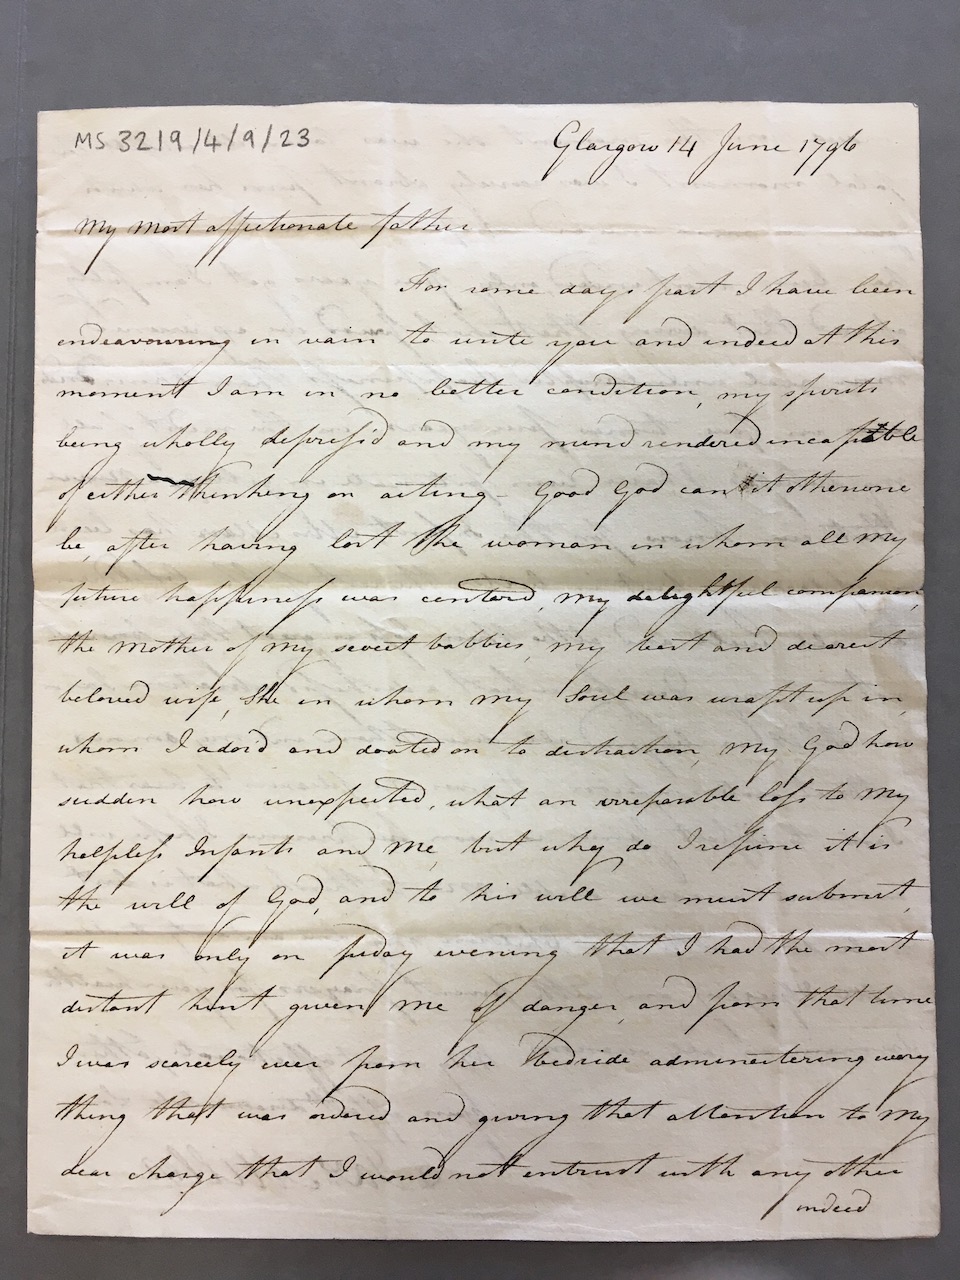 MS 3219/4/9/23
Glasgow 14 June 1796
My most affectionate father
For some days past I have been
endeavouring in vain to write you and indeed at this
moment I am in no better condition, my spirits
being wholly depress'd and my mind rendered incapable
of either thinking or acting - Good God can it otherwise
be, after having lost the woman in whom all my
future happiness was centerd, my delightful companion,
the mother of my sweet babbies, my best and dearest
beloved wife, She in whom my Soul was wrapt up in,
whom I ador'd and doated on to distraction, My God how
sudden how unexpected, what an irreparable loss to my
helpless Infants and me, but why do I repine it is
the will of God, and to his will we must submit,
it was only on friday evening that I had the most
distant hint given me of danger, and from that time
I was scarcely ever from her bedside administering every
thing that was ordered and giving that attention to my
dear charge that I would not entrust with any other
indeed